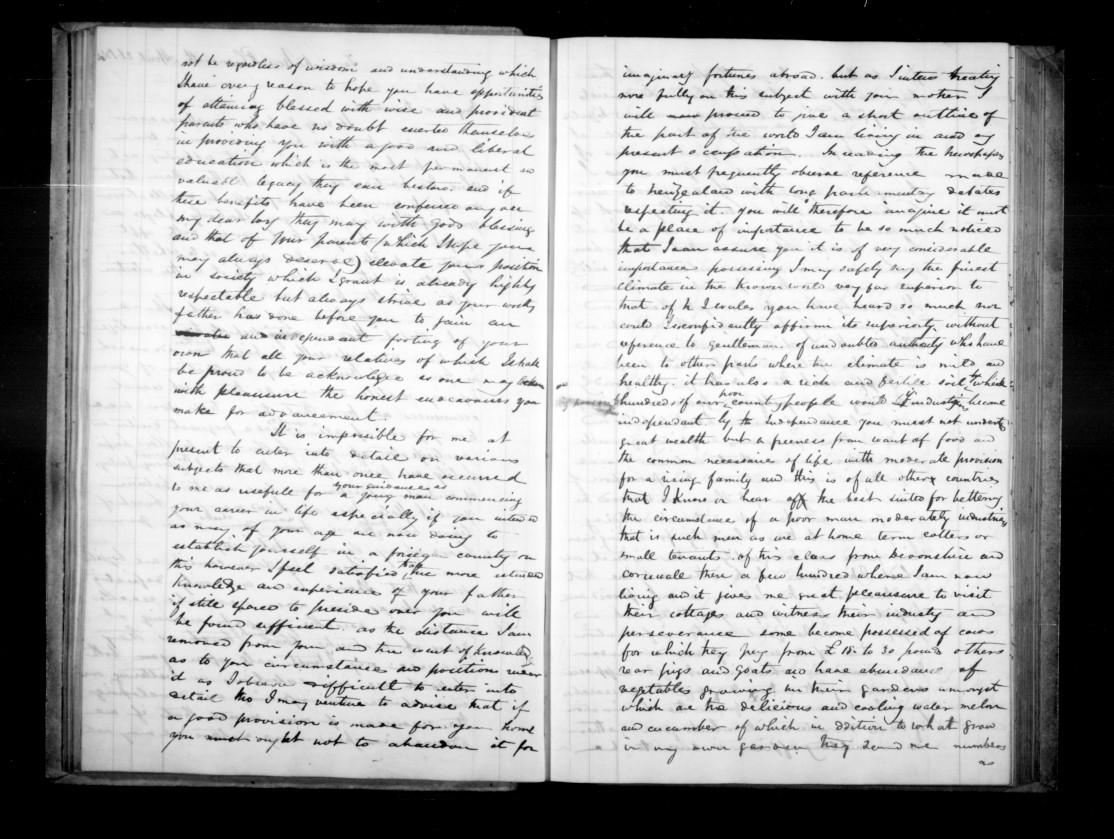 not be regardless of wisdom and understanding which
I have every reason to hope you have opportunities
of attaining blessed with wise and provident
parents who have no doubt exerted themselves
in providing you with a good and liberal
education which is the most permanent and
valuable legacy they can bestow and if
these benefits have been conferred on you
my dear boy they may with Gods blessing
and that of your parents (which I hope you
may always deserve) elevate your position
in society which I grant is already highly
respectable but always strive as your worthy
father has done before you to gain an
and independant footing of your
own that all your relatives of which I shall
be proud to be acknowledge as one may
with pleasure the honest endeavours you
make for advancement
It is impossible for me at
present to enter into detail on various
subjects that more than once have occurred
to me as usefull for your guidance as a young man commencing
your career in life especially if you intended
as many of your age are now doing to
establish yourself in a foreign country on
this however I feel satisfied that the more extended
knowledge and experience of your father
if still spared to preside over you will
be found sufficient. as the distance I am
removed from you and the want of knowledge
as to you circumstance and position
as I observe difficult to enter into
detail tho I may venture to advise that if
a good provision is made for you home
you ought not to abandon it for
imaginary fortunes abroad. but as I intend treating
more fully on this subject with your mother I
will now proceed to give a short outline of
the part of the world I am living in and my
present occupation. In reading the newspapers
you must frequently observe reference made
to New Zealand with long parliamentary debates
respecting it. you will therefore imagine it must
be a place of importance to be so much noticed
that I can assure you it is of very considerable
importance possessing I may safely say the finest
climate in the known world very far superior to
that of N S Wales you have heard so much nor
could I so confidently affirm its superiority without
reference to gentleman of undoubted authority who have
been to other parts where the climate is mild and
healthy. it has also a rich and fertile soil by which
hundreds of our poor country people would by industry become
independant by the Independance you must not underst
great wealth but a freeness from want of food and
the common necessaries of life with moderate provision
for a rising family and this is of all other countries
that I know or hear off the best suited for bettering
the circumstance of a poor man moderately industrious
that is such men as we at home term cotters or
small tenants. of this class from Devonshire and
Cornwall there a few hundred where I am now
living and it gives me great pleasure to visit
their cottages and witness their industry and
perseverance some become possessed of cows
for which they pay from £18. to 30 pounds others
rear pigs and goats and have abundance of
vegetables growing in their gardens amongst
which are the delicious and cooling water melon
and cucumber of which in addition to what grow
in my own garden they send me numbers
as